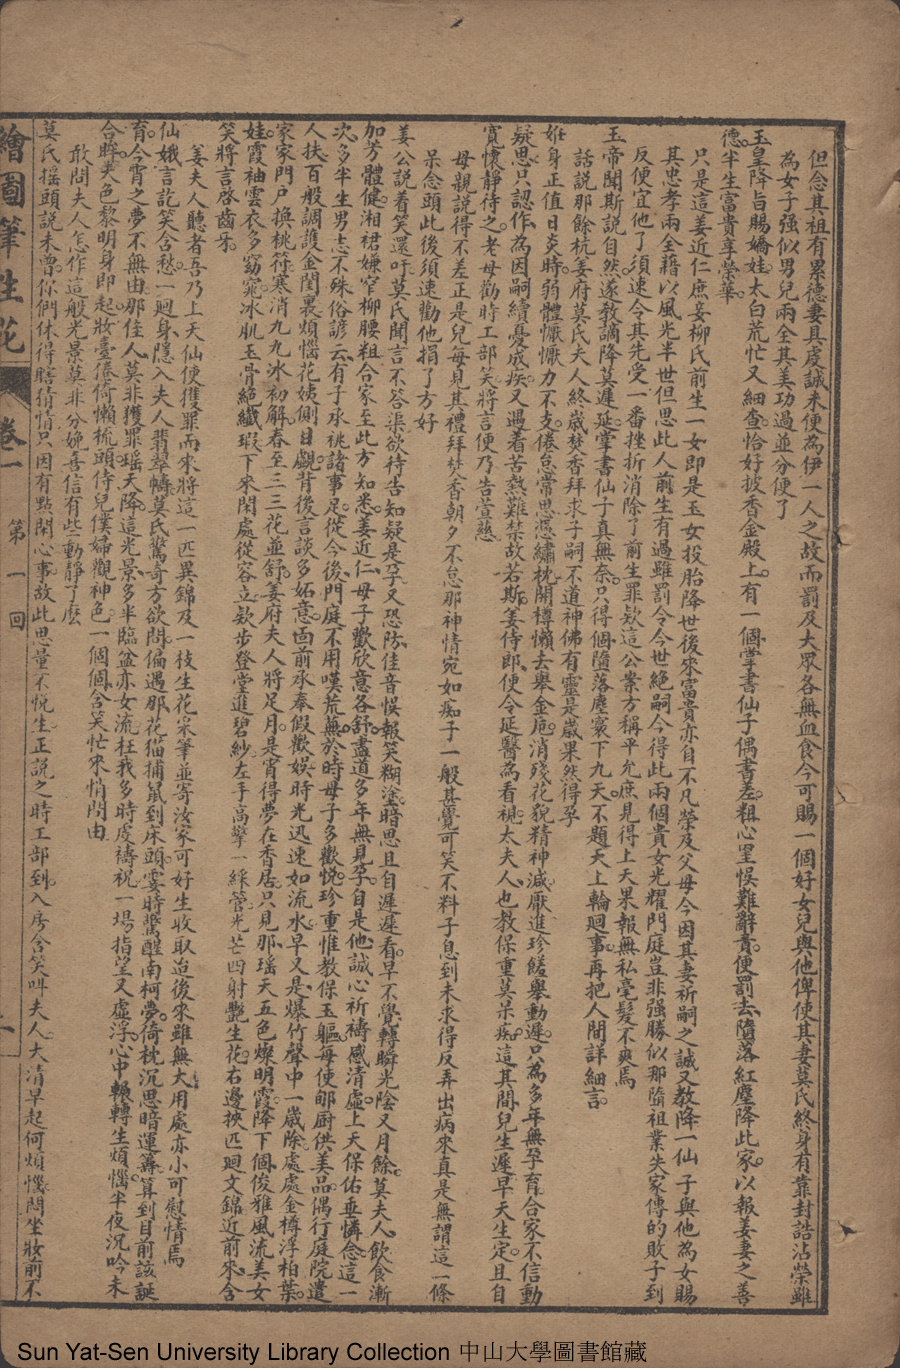 但念其祖有累德妻具虔誠未便為伊一人之故而罰及大眾各無血食今可賜一個好女兒與他俾使其妻莫氏終身有靠封誥沾榮雖
為女子強似男兒兩全其美功過並分便了
玉皇降旨賜嬌娃太白荒忙又細查恰好披香金殿上有一個掌書仙子偶書差粗心墨悞難辭責便罰去墮落紅塵降此家以報姜妻之善
德半生富貴享榮華
只是這姜近仁庶妾柳氏前生一女即是玉女投胎降世後來富貴亦自不凡榮及父母今因其妻祈嗣之誠又教降一仙子與他為女賜
其忠孝兩全藉以風光半世但思此人前生有過雖罰令今世絕嗣今得此兩個貴女光耀門庭豈非強勝似那隳祖業失家傳的敗子到
反便宜他了須速令其先受一番挫折消除了前生罪欵這公案方稱平允庶見得上天果報無私毫髮不爽焉
玉帝聞斯說自然遂教謫降莫遲延掌書仙子真無奈只得個墮落塵寰下九天不題天上輪廻事再把人間詳細言
話說那餘杭姜府莫氏夫人終歲焚香拜求子嗣不道神佛有靈是歲果然得孕
姙身正值日炎時弱體懨懨力不支倦怠常思凴繡枕開樽懶去舉金卮消殘花貌精神減厭進珍饈舉動遲只為多年無孕育合家不信動
疑思只認作為因嗣續憂成疾又遇着苦熱難禁故若斯姜侍郎便令延醫為看視太夫人也教保重莫呆痴這其間兒生遲早天生定且自
寬懷靜待之老母勸時工部笑將言便乃告萱慈
母親說得不差正是兒每見其禮拜焚香朝夕不怠那神情宛如痴子一般甚覺可笑不料子息到未求得反弄出病來真是無謂這一條
呆念頭此後須速勸他捐了方好
姜公說着笑還吁莫氏聞言不答渠欲待告知疑是孕又恐防佳音悞報笑糊塗暗思且自遲遲看早不覺轉瞬光陰又月餘莫夫人飲食漸
加芳體健湘裙嫌窄柳腰粗合家至此方知悉姜近仁母子歡欣意各舒盡道多年無見孕自是他誠心祈禱感清虛上天保佑垂憐念這一
次多半生男志不殊俗諺云有子承祧諸事足從今後門庭不用嘆荒蕪於時母子多歡悅珍重惟教保玉軀每使郇厨供美品偶行庭院遣
人扶百般調護金閨裏煩惱花姨側目覷背後言談多妬意面前承奉假歡娛時光迅速如流水早又是爆竹聲中一歲除處處金樽浮柏葉
家家門户換桃符寒消九九冰初解春至三三花並舒姜府夫人將足月是宵得夢在香居只見那瑤天五色燦明霞降下個俊雅風流美女
娃霞袖雲衣多窈窕冰肌玉骨絕纖瑕下來閑處從容立欵步登堂進碧紗左手高擎一綵管光芒四射艷生花右邊挾匹廻文錦近前來含
笑將言啓齒牙
姜夫人聽者吾乃上天仙便獲罪而來將這一匹異錦及一枝生花采筆並寄汝家可好生收取迨後來雖無大用處亦小可慰情焉
仙娥言訖笑含愁一廻身隱入夫人翡翠幬莫氏驚奇方欲問偏遇那花猫捕鼠到床頭霎時驚醒南柯夢倚枕沉思暗運籌算到目前該誕
育今宵之夢不無由那佳人莫非獲罪瑤天降這光景多半臨盆亦女流枉我多時虔禱祝一場指望又虛浮心中輾轉生煩惱半夜沉吟未
合眸天色黎明身即起妝臺倦倚懶梳頭侍兒僕婦觀神色一個個含笑忙來悄問由
敢問夫人怎作這般光景莫非分娩喜信有些動靜了麽
莫氏搖頭說未曾你們休得瞎猜情只因有點閑心事故此思量不悅生正說之時工部到入房含笑呌夫人大清早起何煩惱悶坐妝前不
繪圖筆生花
卷一
第一回
二
Sun Yat-Sen University Library Collection 中山大學圖書館藏